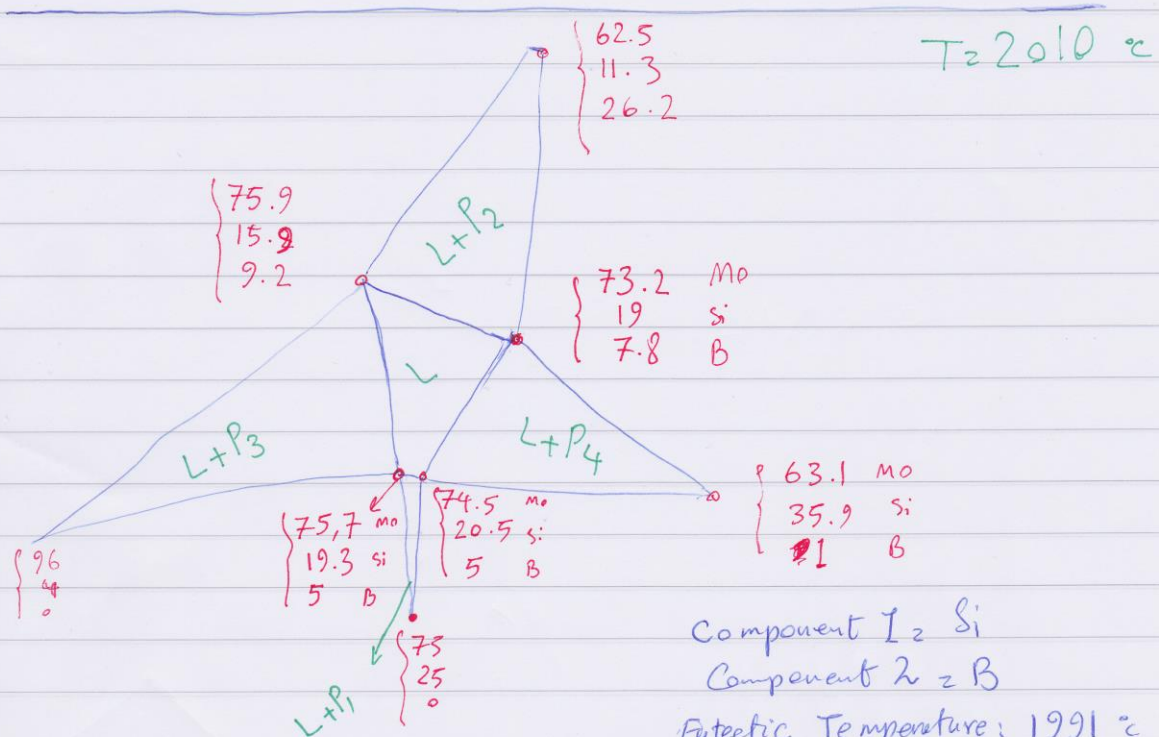 T=2010 °C
62.5
11.3
26.2
75.9
15.9
9.2
L+P2
73.2 Mo
19 Si
7.8 B
L
L+P3
L+P4
63.1 Mo
35.9 Si
1 B
75,7 Mo
19.3 Si
5 B
74.5 Mo
20.5 Si
5 B
96
4
0
75
25
0
L+P1
Component 1 = Si
Component 2 = B
Eutectic Temperature: 1991 °C